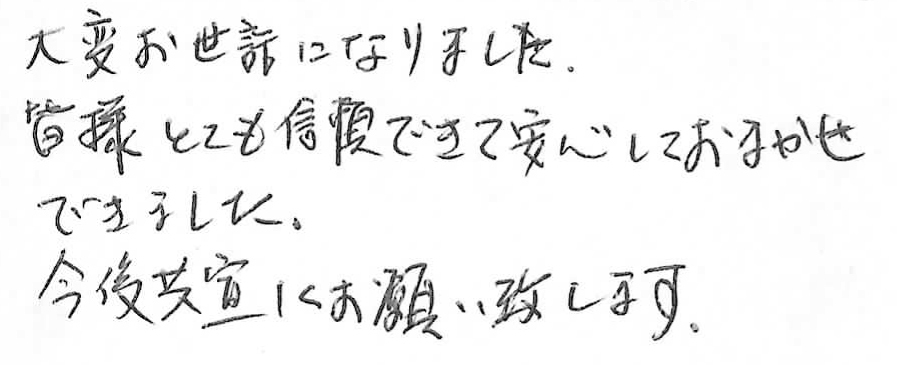 大変お世話になりました.
皆様とても信頼できて安心しておまかせ
できました。
今後共宜しくお願い致します.